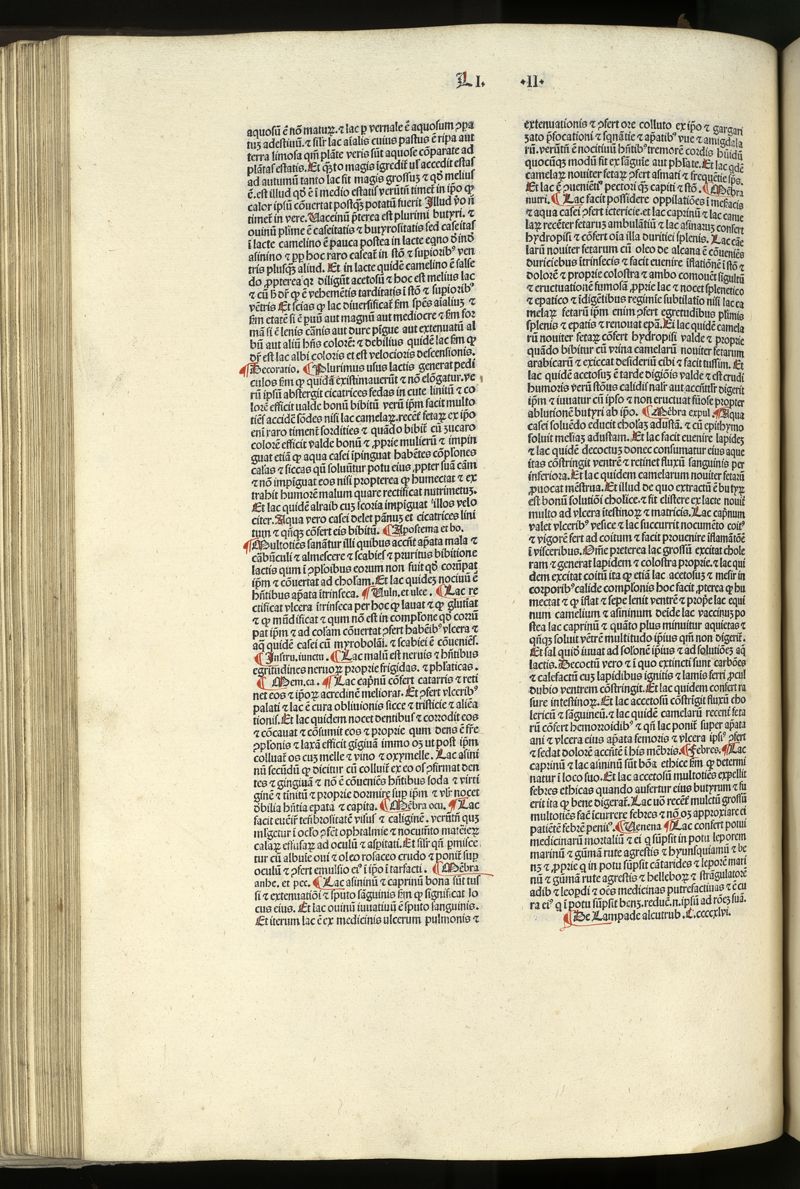 LI. ·II·
aquosũ ẽ nõ maturꝝ. ⁊ lac ꝑ vernale ẽ aquosum ꝯpa
tuʒ adestiuũ. ⁊ sil'r lac aĩalis cuius pastus ẽ ripa aut
terra limosa qm̃ plãte veris sũt aquose cõparate ad
plãtas estatis. Et qʒto magis ĩgredit' usq; accedit estas
ad autumnũ tanto lac sit magis grossuʒ ⁊ qđ melius
ẽ. est illud qđ ẽ ĩ medio estatis verũtñ timet' in ip̃o ꝙ
calor ipsũ cõuertat postqʒ potatũ fuerit Illud v̊o ñ
timet' in vere. Vaccinũ p̃terea est plurimi butyri. ⁊
ouinũ plime ẽ caseitatis ⁊ butyrositatis sed caseitas
ĩ lacte camelino ẽ pauca postea in lacte eqno đinđ
asinino ⁊ ꝓp hoc raro caseat' in stõ ⁊ supiorib⁹ ven
tris plusqʒ aliud. Et in lacte quidẽ camelino ẽ salse
do ꝓpterea qꝛ diligũt acetosũ ⁊ hoc est melius lac
⁊ cũ h̃ đr ꝙ ẽ vehemẽtis tarditatis ĩ stõ ⁊ supiorib⁹
vẽtris Et scias ꝙ lac diuersificat' fm̃ spẽs aĩaliuʒ ⁊
fm̃ etatẽ si ẽ puũ aut magnũ aut mediocre ⁊ fm̃ for
mã si ẽ lenis cãnis aut dure pĩgue aut extenuatũ al
bũ aut aliũ hñs colorẽ: ⁊ debilius quidẽ lac fm̃ ꝙ
đr est lac albi coloris et est velocioris descensionis.
¶ Decoratio. ¶ Plurimus usus lactis generat pedi
culos fm̃ ꝙ quidã existimauerũt ⁊ nõ elõgatur. ve
rũ ipsũ abstergit cicatrices fedas in cute linitũ ⁊ co
lorẽ efficit ualde bonũ bibitũ verũ ip̃m facit multo
tiẽs accidẽ sõdes nisi lac camelaꝝ. recẽt' fetaꝝ ex ip̃o
eni raro timent' sordities ⁊ quãdo bibit' cũ zucaro
colorẽ efficit valde bonũ ⁊ ꝓprie mulierũ ⁊ impin
guat etiã ꝙ aqua casei ĩpinguat habẽtes cõplones
calas ⁊ siccas qñ soluũtur potu eius ꝓpter suã cãm
⁊ nõ impiguat eos nisi propterea ꝙ humectat ⁊ ex
trahit humorẽ malum quare rectificat' nutrimẽtuʒ.
Et lac quidẽ alraib cuʒ scoria impiguat illos velo
citer. Aqua vero casei delet pãnuʒ et cicatrices lini
tum ⁊ qñqʒ cõfert eis bibitũ. ¶ Apostema et bo.
¶ Multotiẽs sanãtur illi quibus accñt ap̃ata mala ⁊
cãbũculi ⁊ almescere ⁊ scabies ⁊ pruritus bibitione
lactis qum ĩ ꝯplõibus eorum non fuit qđ corũpat
ip̃m ⁊ cõuertat ad cholam. Et lac quideʒ nociuũ ẽ
hñtibus ap̃ata ĩtrinseca. ¶ Vuln. et ulce. ¶ Lac re
ctificat vlcera ĩtrinseca per hoc ꝙ lauat ⁊ ꝙ glutiat
⁊ ꝙ mũdificat ⁊ qum nõ est in complone qđ corrũ
pat ip̃m ⁊ ad colam cõuertat ꝯfert habẽtib⁹ vlcera ⁊
aq̃ quidẽ casei cũ myrobolãi. ⁊ scabiei ẽ cõueniẽs.
¶ Instru. iunctu. ¶ Lac malũ est neruis ⁊ hñtibus
egritudines neruoꝝ proprie frigidas. ⁊ phlaticas.
¶ Mem. ca. ¶ Lac cap̃nũ cõfert catarris ⁊ reti
net eos ⁊ ip̃oꝝ acredinẽ meliorat. Et ꝯfert vlcerib⁹
palati ⁊ lac ẽ cura obliuionis sicce ⁊ tristicie ⁊ aliẽa
tionis. Et lac quidem nocet dentibus ⁊ corrodit eos
⁊ cõcauat ⁊ cõsumit eos ⁊ proprie qum dens ẽ fre
ꝯplonis ⁊ laxã efficit gigiuã immo oʒ ut post ip̃m
colluat' os cuʒ melle ⁊ vino ⁊ oxymelle. Lac asini
nũ secũdũ ꝙ dicitur cũ colluit' ex eo os ꝯfirmat den
tes ⁊ gingiuã ⁊ nõ ẽ cõueniẽs hñtibus soda ⁊ virti
ginẽ ⁊ tinitũ ⁊ proprie dormire sup ip̃m ⁊ vl'r nocet
debilia hñtia epata ⁊ capita. ¶ Mẽbra ocu. ¶ Lac
facit euẽir' tenbrositatẽ visus ⁊ caliginẽ. verũtñ quʒ
mulgetur ĩ oc'lo ꝯfert ophtalmie ⁊ nocumẽto materieꝝ
calaꝝ effusaꝝ ad oculũ ⁊ aspitati. Et sil'r qñ ꝑmisce
tur cũ albuĩe oui ⁊ oleo rosaceo crudo ⁊ ponit' sup
oculũ ⁊ ꝯfert emulsio ei⁹ ĩ ip̃o ĩ tarfacti. ¶ Mẽbra
anhe. et pec. ¶ Lac asininũ ⁊ caprinũ bona sũt tus
si ⁊ extenuatiõi ⁊ sputo sãguinis fm̃ ꝙ significat' lo
cus eius. Et lac ouinũ iuuatiuũ ẽ sputo sanguinis.
Et iterum lac ẽ ex medicinis ulcerum pulmonis ⁊
extenuationis ⁊ ꝯfert ore colluto ex ip̃o ⁊ gargari
zato p̃focationi ⁊ sq̃nãtie ⁊ ap̃atib⁹ vue ⁊ amigdala
rũ. verũtñ ẽ nocitiuũ hñtib⁹ tremorẽ cordis hũidũ
quocũqʒ modũ fit ex sãguĩe aut phlate. Et lac qdẽ
camelaꝝ nouiter fetaꝝ ꝯfert asmati ⁊ frequẽtie sp̃s.
Et lac ẽ ꝓueniẽs pectori qʒ capiti ⁊ stõ. ¶ Mẽbra
nutri. ¶ Lac facit possidere oppilatiões ĩ mesacis
⁊ aqua casei ꝯfert ictericie. et lac caprinũ ⁊ lac came
laꝝ recẽter fetaꝝ ambulãtiũ ⁊ lac asinaꝝ confert
hydropisi ⁊ cõfert oĩa illa duritiei splenis. Lac cãe
larũ nouiter fetarum cũ oleo de alcana ẽ cõueniẽs
duriciebus ĩtrinsecis ⁊ facit euenire ĩflationẽ ĩ stõ ⁊
dolorẽ ⁊ proprie colostra ⁊ ambo comouẽt sigultũ
⁊ eructuationẽ fumosã ꝓprie lac ⁊ nocet splenetico
⁊ epatico ⁊ ĩdigẽtibus regimĩe subtilatio nisi lac ca
melaꝝ fetarũ ip̃m enim ꝯfert egretudibus plimis
splenis ⁊ epatis ⁊ renouat epã. Et lac quidẽ camela
rũ nouiter fetaꝝ cõfert hydropisi valde ⁊ proprie
quãdo bibitur cũ vrina camelarũ nouiter fetarum
arabicarũ ⁊ exiccat desideriũ cibi ⁊ facit tussim. Et
lac quidẽ acetosuʒ ẽ tarde digiõis valde ⁊ est crudi
humoris verũ stõus calidi nal'r aut accñtl'r digerit
ip̃m ⁊ iuuatur cũ ipso ⁊ non eructuat fũose propter
ablutionẽ butyri ab ip̃o. ¶ Mẽbra expul. ¶ Aqua
casei soluẽdo educit cholaʒ adustã. ⁊ cũ epithymo
soluit melãaʒ adustam. Et lac facit euenire lapideʒ
⁊ lac quidẽ decoctuʒ donec consumatur eius aque
itas cõstringit ventrẽ ⁊ retinet fluxũ sanguinis per
inferiora. Et lac quidem camelarum nouiter fetarũ
ꝓuocat mẽstrua. Et illud de quo extractũ ẽ butyꝝ
est bonũ solutiõi cholice. ⁊ fit clistere ex lacte nouit'
multo ad vlcera ĩtestinoꝝ ⁊ matricis. Lac cap̃num
valet vlcerib⁹ vesice ⁊ lac succurrit nocumẽto coit⁹
⁊ vigorẽ fert ad coitum ⁊ facit prouenire ĩflamãtõẽ
ĩ visceribus. Om̃e preterea lac grossũ excitat chole
ram ⁊ generat lapidem ⁊ colostra proprie. ⁊ lac qui
dem excitat coitũ ita ꝙ etiã lac acetosuʒ ⁊ mesir in
corporib⁹ calide complonis hoc facit ꝓterea ꝙ hu
mectat ⁊ ꝙ ĩflat ⁊ sepe lenit ventrẽ ⁊ prop̃e lac equi
num camelium ⁊ asininum deinde lac vaccinuʒ po
stea lac caprinũ ⁊ quãto plus minuitur aquietas ⁊
qñqʒ soluit vẽtrẽ multitudo ipius qm̃ non digerit'.
Et sal quiđ iuuat ad solonẽ ipius ⁊ ad solutiõeʒ aq̃
lactis. Decoctũ vero ⁊ ĩ quo extincti sunt carbões
⁊ calefactũ cuʒ lapidibus ignitis ⁊ lamis ferri ꝓcul
dubio ventrem cõstringit. Et lac quidem confert ra
sure intestinoꝝ. Et lac acetosũ cõstrigit fluxũ cho
lericũ ⁊ sãguineũ. ⁊ lac quidẽ camelarũ recent' feta
rũ cõfert homoroidib⁹ ⁊ qñ lac ponit' super ap̃ata
ani ⁊ vlcera eius ap̃ata femoris ⁊ vlcera ipsi⁹ ꝯfert
⁊ sedat dolorẽ accñtẽ ĩ his mẽbris. ¶ Febres. ¶ Lac
caprinũ ⁊ lac asininũ sũt bõa ethice fm̃ ꝙ determi
natur ĩ loco suo. Et lac acetosũ multotiẽs expellit
febres ethicas quando aufertur eius butyrum ⁊ fu
erit ita ꝙ bene digerat'. Lac uõ recẽt' mulctũ grossũ
multotiẽs facit icurrere febres ⁊ nõ oʒ approxiare ei
patiẽtẽ febrẽ peni⁹. ¶ Venena ¶ Lac confert potui
medicinarũ mortaliũ ⁊ ei q̃ sũpsit in potu leporem
marinũ ⁊ gũmã rute agrestis ⁊ hyunsquiamũ ⁊ be
nʒ ⁊ ꝓprie q̃ in potu sũpsit cãtarides ⁊ leporẽ mari
nũ ⁊ gũmã rute agrestis ⁊ helleboꝝ ⁊ strãgulatorẽ
adib ⁊ leopdi ⁊ oẽs medicinas putrefactiuas ⁊ ẽ cu
ra ei⁹ q̃ ĩ potu sũpsit benʒ. reduc̃. n. ipsũ ad rõeʒ suã.
¶ De Lampade alcutrub. C. ccccxlvi.